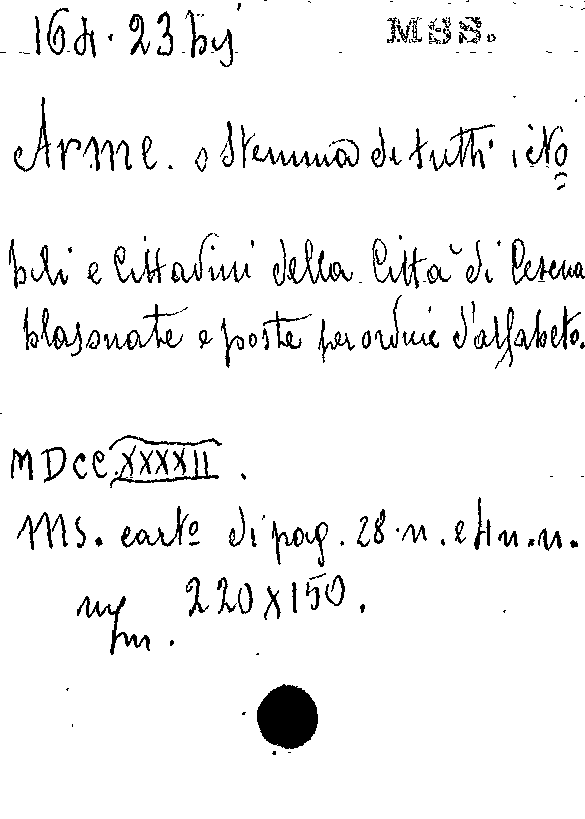 164.23 bis MSS.
Arme. o Stemma di tutti i No
bili e Cittadini della Città di Cesena
blasonate e poste per ordine d'alfabeto.
MDCCXXXXII.
Ms. carto di pag. 28.n. e 4 n.n.
220x150.